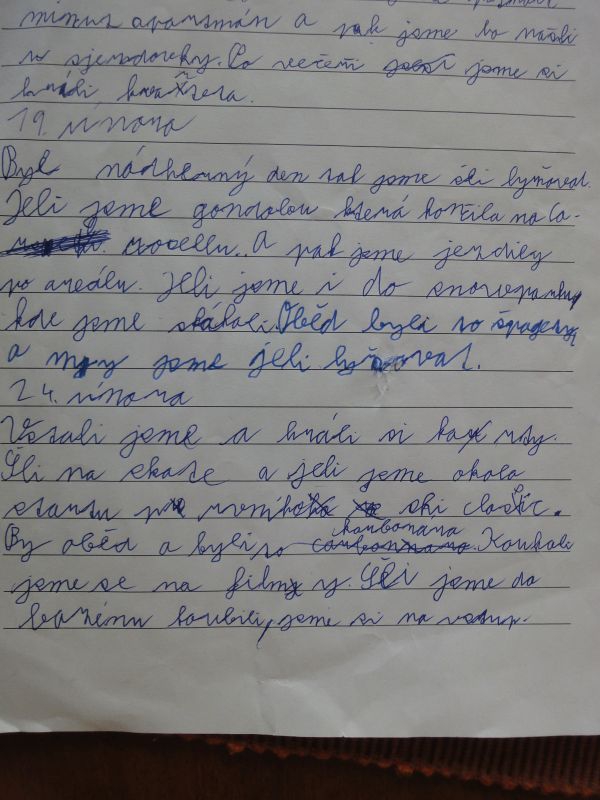 minus apartmán a pak jsme to našli
v sjezdovky. Po večeři jsme si
hráli kvarteta.
19. února
Byl nádherný den tak jsme šli lyžovat.
Jeli jsme gondolou která končila na Co-
rocellu. A pak jsme jezdily
po areálu. Jeli jsme i do snowparku
kde jsme skákali. Oběd byli to špagety
a my jsme jeli lyžovat.
24. února
Vstali jsme a hráli si karty.
Šli na skate a jeli jsme okolo
startu ski clasic.
By oběd a byli to karbonana Koukali
jsme se na filmy. Šli jsme do
bazénu koubili, jsme si na vstup.